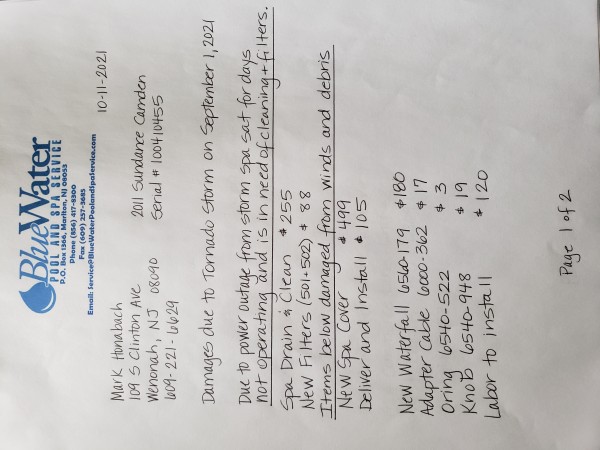 BlueWater
POOL AND SPA SERVICE
P.O. Box 1366, Marlton, NJ 08053
Phone (856) 417-8300
Fax (609) 257-3645
Email: Service@BlueWaterPoolandSpaService.com
10-11-2021
Mark Honabach
109 S Clinton Ave 2011 Sundance Camden
Wenonah, NJ 08090 Serial # 100410455
609-221-6629
Damages due to Tornado Storm on September 1, 2021
Due to power outage from storm spa sat for days
not operating and is in need of cleaning + filters.
Spa Drain & Clean $255
New Filters (501+502) $ 88
Items below damaged from winds and debris
New Spa Cover $499
Deliver and Install $105
New Waterfall 6560-179 $180
Adapter Cable 6000-362 $17
Oring 6540-522 $ 3
Knob 6540-948 $ 19
Labor to install $120
Page 1 of 2